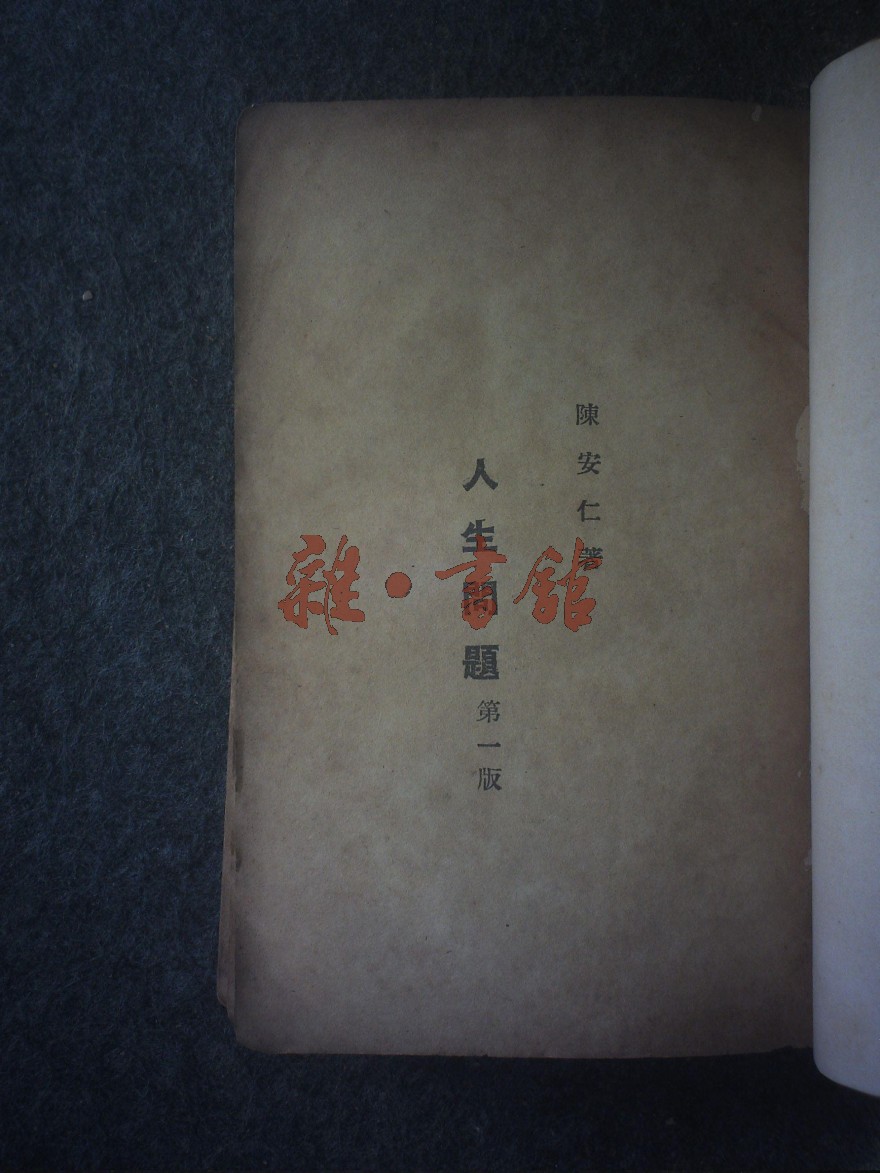 陳安仁著
人生問題
第一版
雜·書館